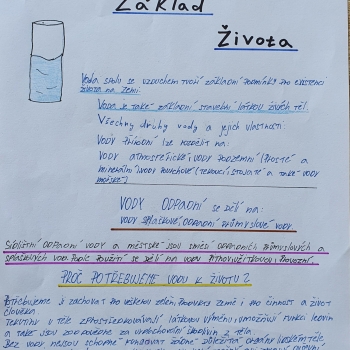 Základ
Života
Voda spolu se vzduchem tvoří základní podmínky pro existenci
života na Zemi.
Voda je také základní stavební látkou živých těl.
Všechny druhy vody a jejich vlastnosti:
Vody přírodní lze rozdělit na:
Vody atmosférické, vody podzemní (prosté a
minerální) vody povrchové (tekoucí, stojaté a také vody
mořské)
VODY ODPADNÍ se dělí na:
vody splaškové, odpadní průmyslové vody.
odpadní vody a městské jsou směsí odpadních průmyslových a
splaškových vod. Podle použití se dělí na vodu pitnou, užitkovou, provozní.
PROČ POTŘEBUJEME VODU K ŽIVOTU?
Potřebujeme ji zachovat pro veškerou zeleň, produkci země i pro činnost a život
člověka.
Tekutiny v těle zprostředkovávají látkovou výměnu, umožňují funkci ledvin
a také jsou zodpovědné za odstranění škodlivin z těla.
Bez vody nejsou schopné fungovat žádné důležité orgány lidského těla